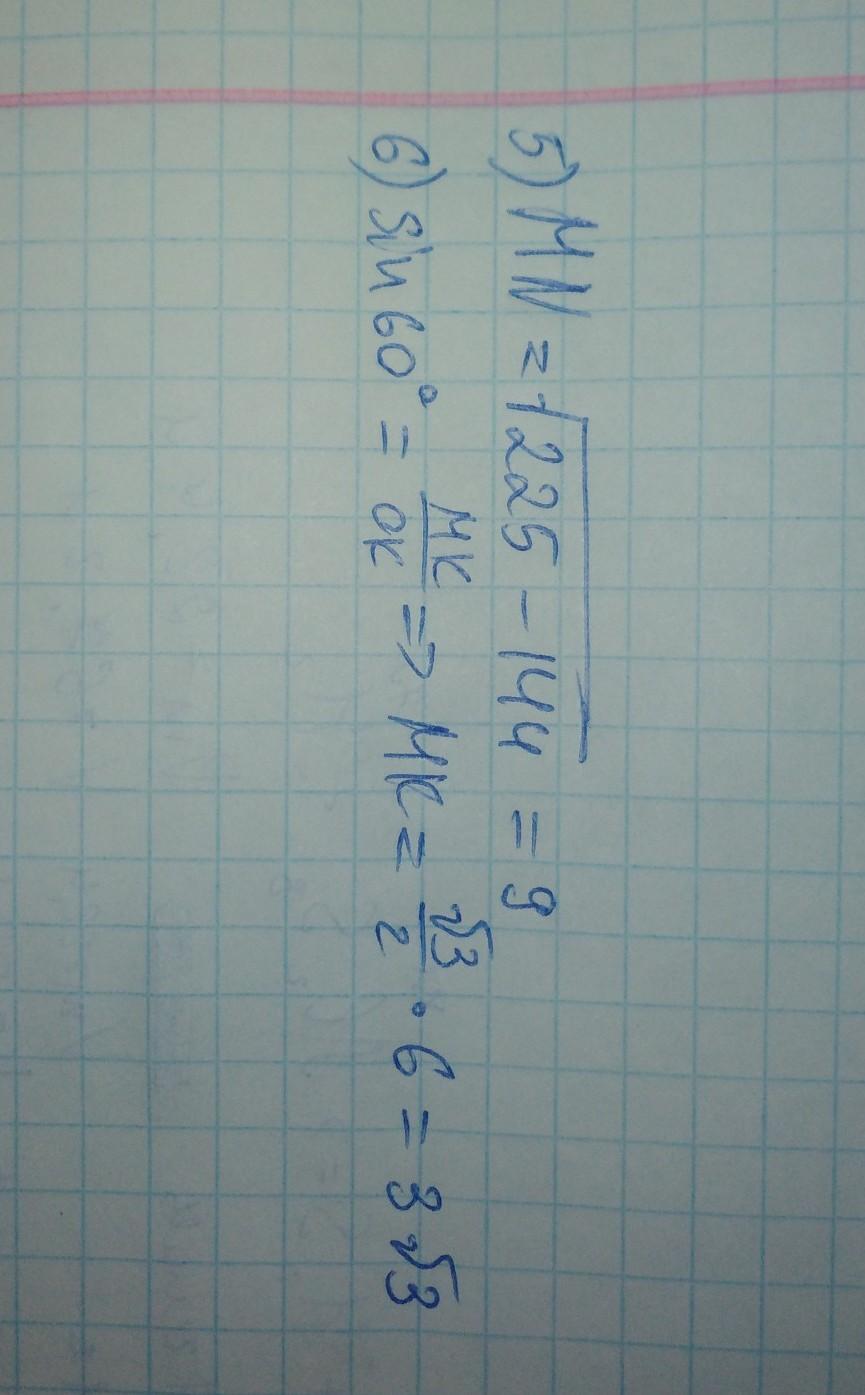 5) MN = √225 - 144 = 9
6) sin 60° = MK/OK => MK = √3/2 · 6 = 3√3